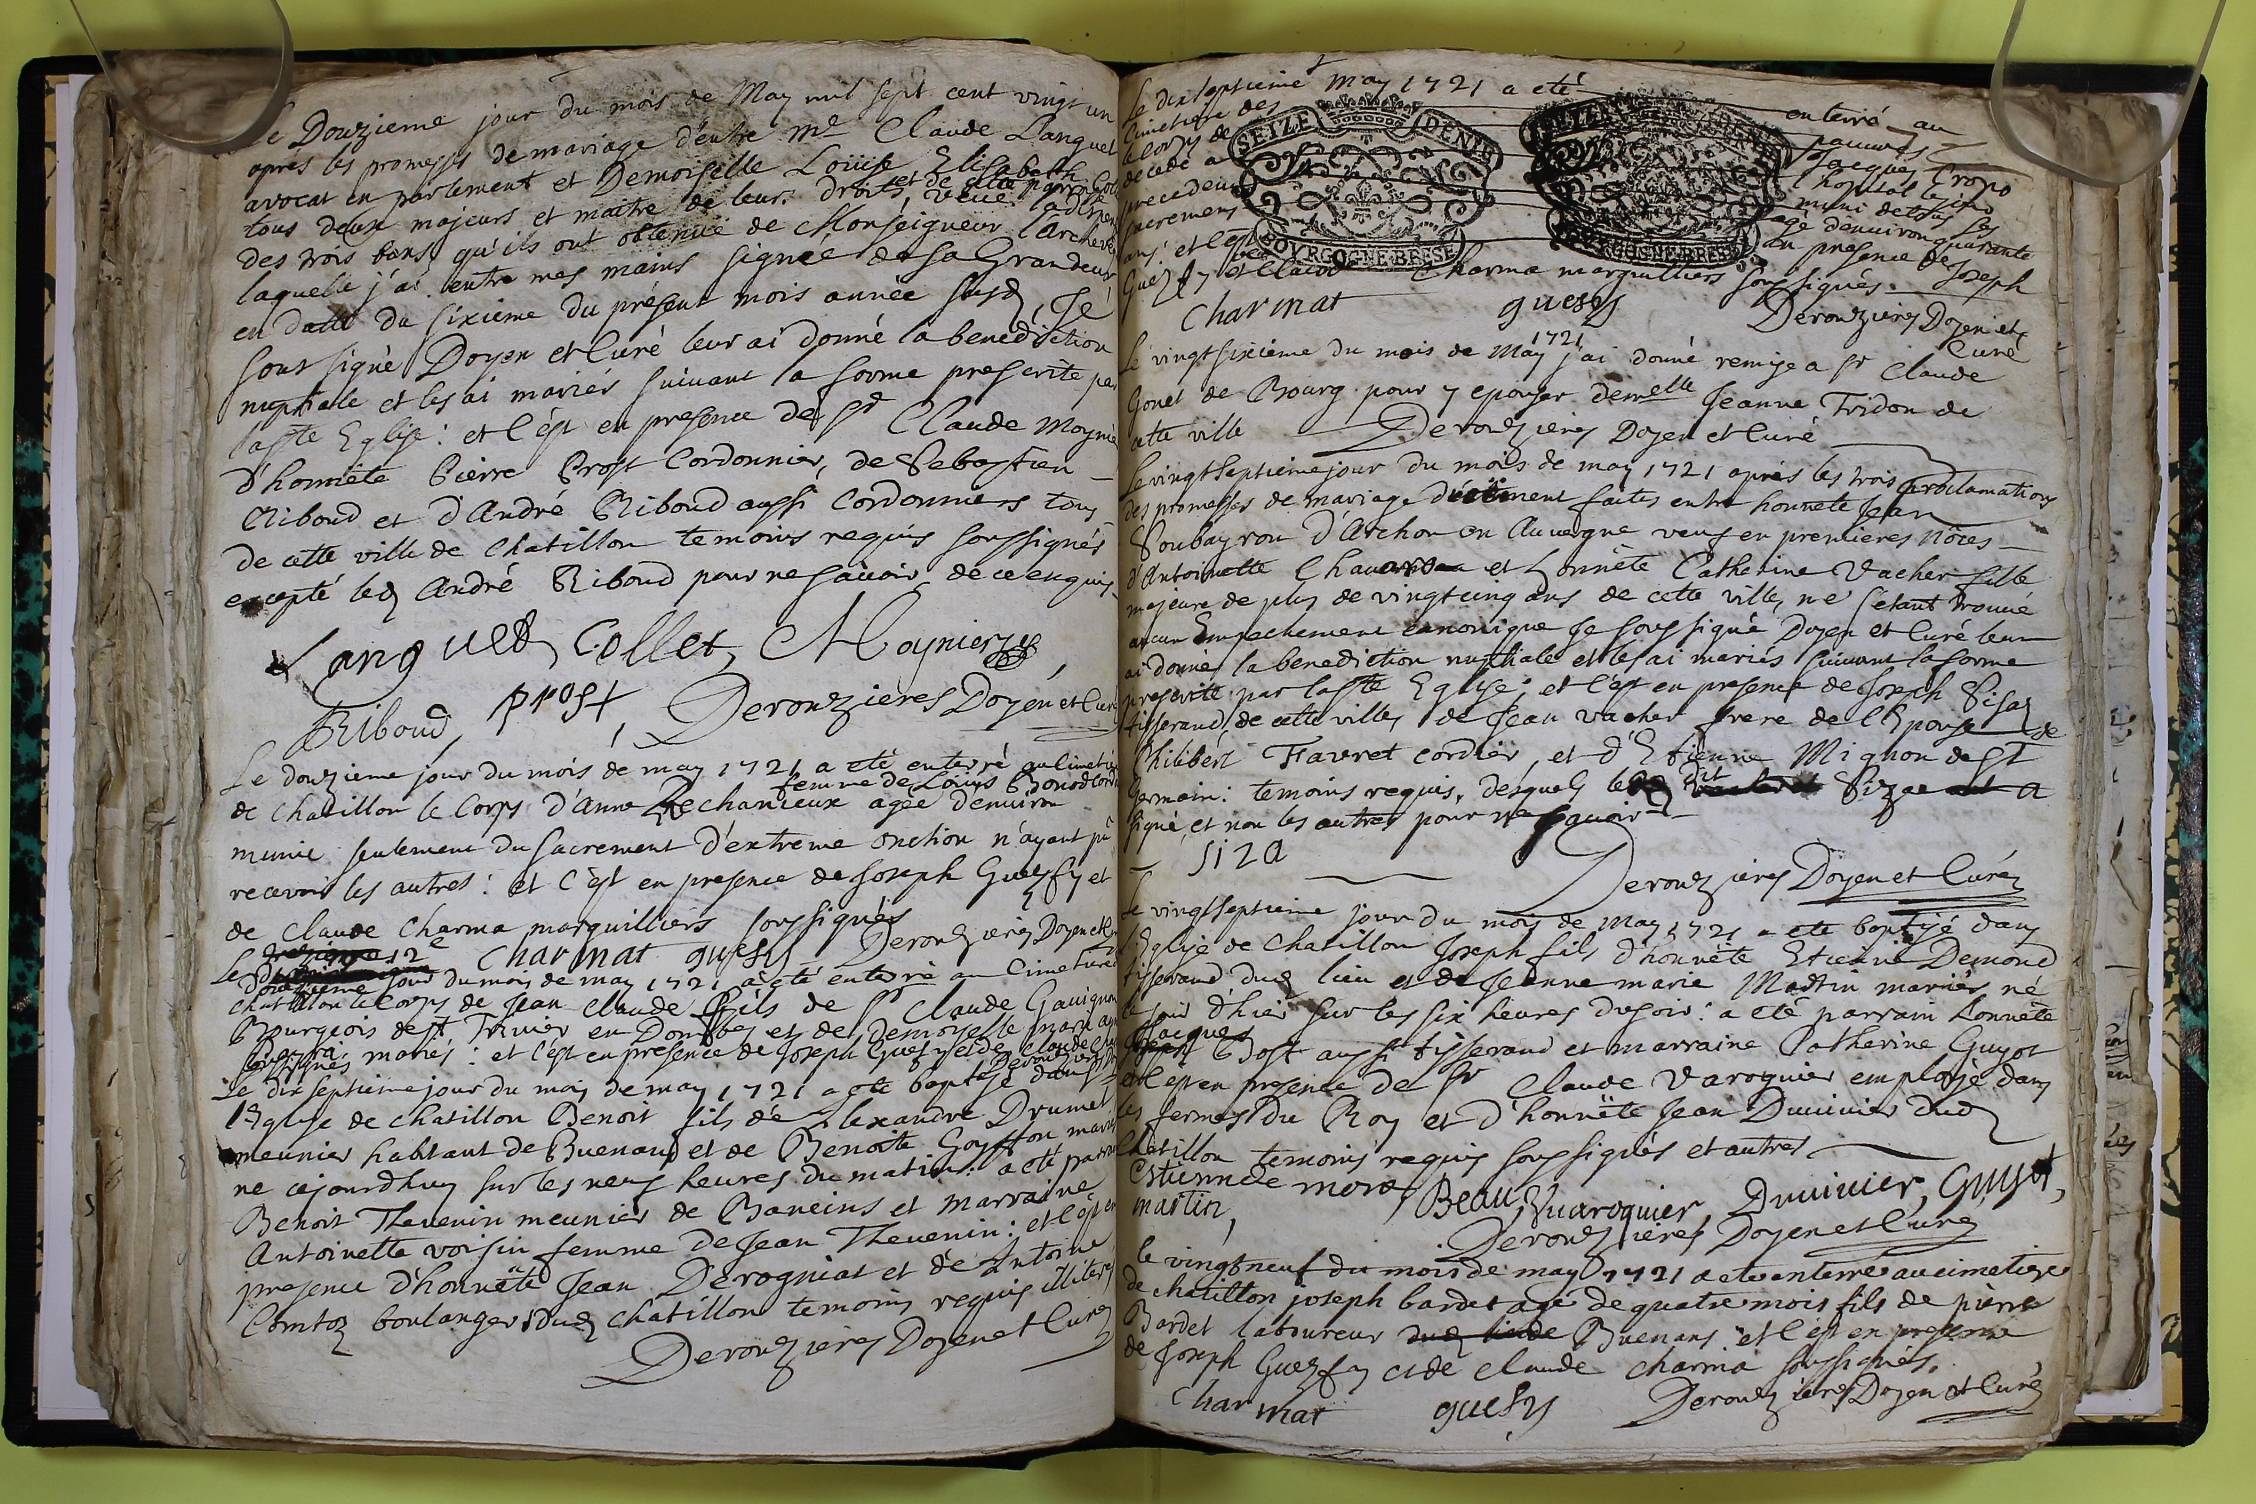 Le Douzieme jour du mois de May mil sept cent vingt un
apres les promesses de mariage d'entre Me Claude Languet
avocat en parlement et Demoiselle Loüise Elisabeth
tous deux majeurs et maitre de leurs droits, et de cette paroisse
des trois bans qu'ils ont obtenüe de Monseigneur l'Archevê
laquelle j'ai entre mes mains signée de sa Grandeur
en datte du sixieme du présent mois année susd, Je
soussigné Doyen et Curé leur ai donné la benediction
nuptiale et les ai mariés suivant la forme prescrite par
laste Eglise: et c'est en presence de Sr Claude Moynier
d'honnête Pierre Prost Cordonnier, de Sebastien
Riboud et d'André Riboud aussi Cordonniers tous
de cette ville de Chatillon temoins requis soussignés
excepté led André Riboud pour ne sçavoir de ce enquis
Languet, Collet, Moynier,
Riboud, prost, Derouzieres Doyen et Curé
Le douzieme jour du mois de may 1721 a eté enterré au Cimetie
femme de Loüis Bonod Cord
de Chatillon le Corps d'Anne Dechanieux agée d'environ
munie seulement du sacrement d'extreme onction n'ayant pû
recevoir les autres: et c'est en presence de Joseph Guesfy et
de Claude Charma marguilliers soussignés
Charmat guesfy Derouzieres Doyen et Curé
Le 12e
jour du mois de may 1721 a été enterré au Cimetiere
Chatillon le Corps de Jean Claude fils de Sr Claude Gauignon
Bourgeois de St Trivier en Dombes et de Demoyselle marie
mariés: et c'est en presence de Joseph Guesfy et de Claude
soussignés Derouzieres
Le dix septieme jour du mois de may 1721 a eté baptisé dans
l'Eglise de chatillon Benoit fils d'Alexandre Drumet
meunier habitant de Buenans et de Benoite Goyffon mariés
né cejourdhuy sur les neuf heures du matin: a eté parrain
Benoit Thevenin meunier de Baneins et marraine
Antoinette voisin femme de Jean Thevenin: et c'est en
presence d'honnête Jean Derogniat et de Antoine
Comtoz boulangers dud chatillon temoins requis illiterés
Derouzieres Doyen et Curé
Le dixseptieme may 1721 a eté enterré au
Cimetiere des pauvres
le Corps de Jacques Crozo
decedé a l'hopital le jour
precedent muni de tous les
sacremens agé d'environ quarante
ans: et c'est en presence de Joseph
Guesfy et Claude Charma marguilliers soussignés.
Charmat guesfy Derouzieres Doyen et
Curé
1721
Le vingt sixieme du mois de May j'ai donné remise a Sr Claude
Gonet de Bourg pour y epouser demelle Jeanne Tridon de
cette ville Derouzieres Doyen et Curé
Le vingt septieme jour du mois de may 1721 aprés les trois proclamations
des promesses de mariage düement faites entre honnete Jean
Soubayrou d'Archon en Auvergne veuf en premieres nôces
d'Antoinette et honnête Catherine Vacher fille
majeure de plus de vingt cinq ans de cette ville, ne s'etant trouvé
aucun Empechement canonique Je soussigné Doyen et Curé leur
ai donné la benediction nuptiale et les ai mariés suivant la forme
prescrite par laste Eglise; et c'est en presence de Joseph Siza
tisserand, de cette ville, de Jean vacher frere de l'Epouse de
Philibert Favret cordier, et d'Etienne Mignon de St
Germain: temoins requis, desquels led Siza a
signé, et non les autres pour ne sçavoir
Siza
Derouzieres Doyen et Curé
Le vingt septieme jour du mois de may 1721 a ete baptisé dans
l'Eglise de Chatillon Joseph fils d'honnête Etienne Demond
tisserand dud lieu et de Jeanne marie Martin mariés né
le jour d'hier sur les six heures du soir: a eté parrain honnête
Jacques
Bost aussi tisserand et marraine Catherine Guyot
et c'est en presence de Sr Claude Varoquier employé dans
les fermes du Roy et d'honnête Jean Duuivier dud
Chatillon temoins requis soussignés et autres
Estienne de mon, Beau, Vuaroquier, Duuivier, Guyot,
martin,
Derouzieres Doyen et Curé
le vingt neuf du mois de may 1721 a ete enterré au cimetiere
de chatillon joseph bardet agé de quatre mois fils de pierre
Bardet laboureur Buenans et c'est en presence
de Joseph Guesfy et de Claude Charma soussignés.
Charmat guesfy Derouzieres Doyen et Curé
SEIZE DENIERS
BOVRGOGNE BRESSE